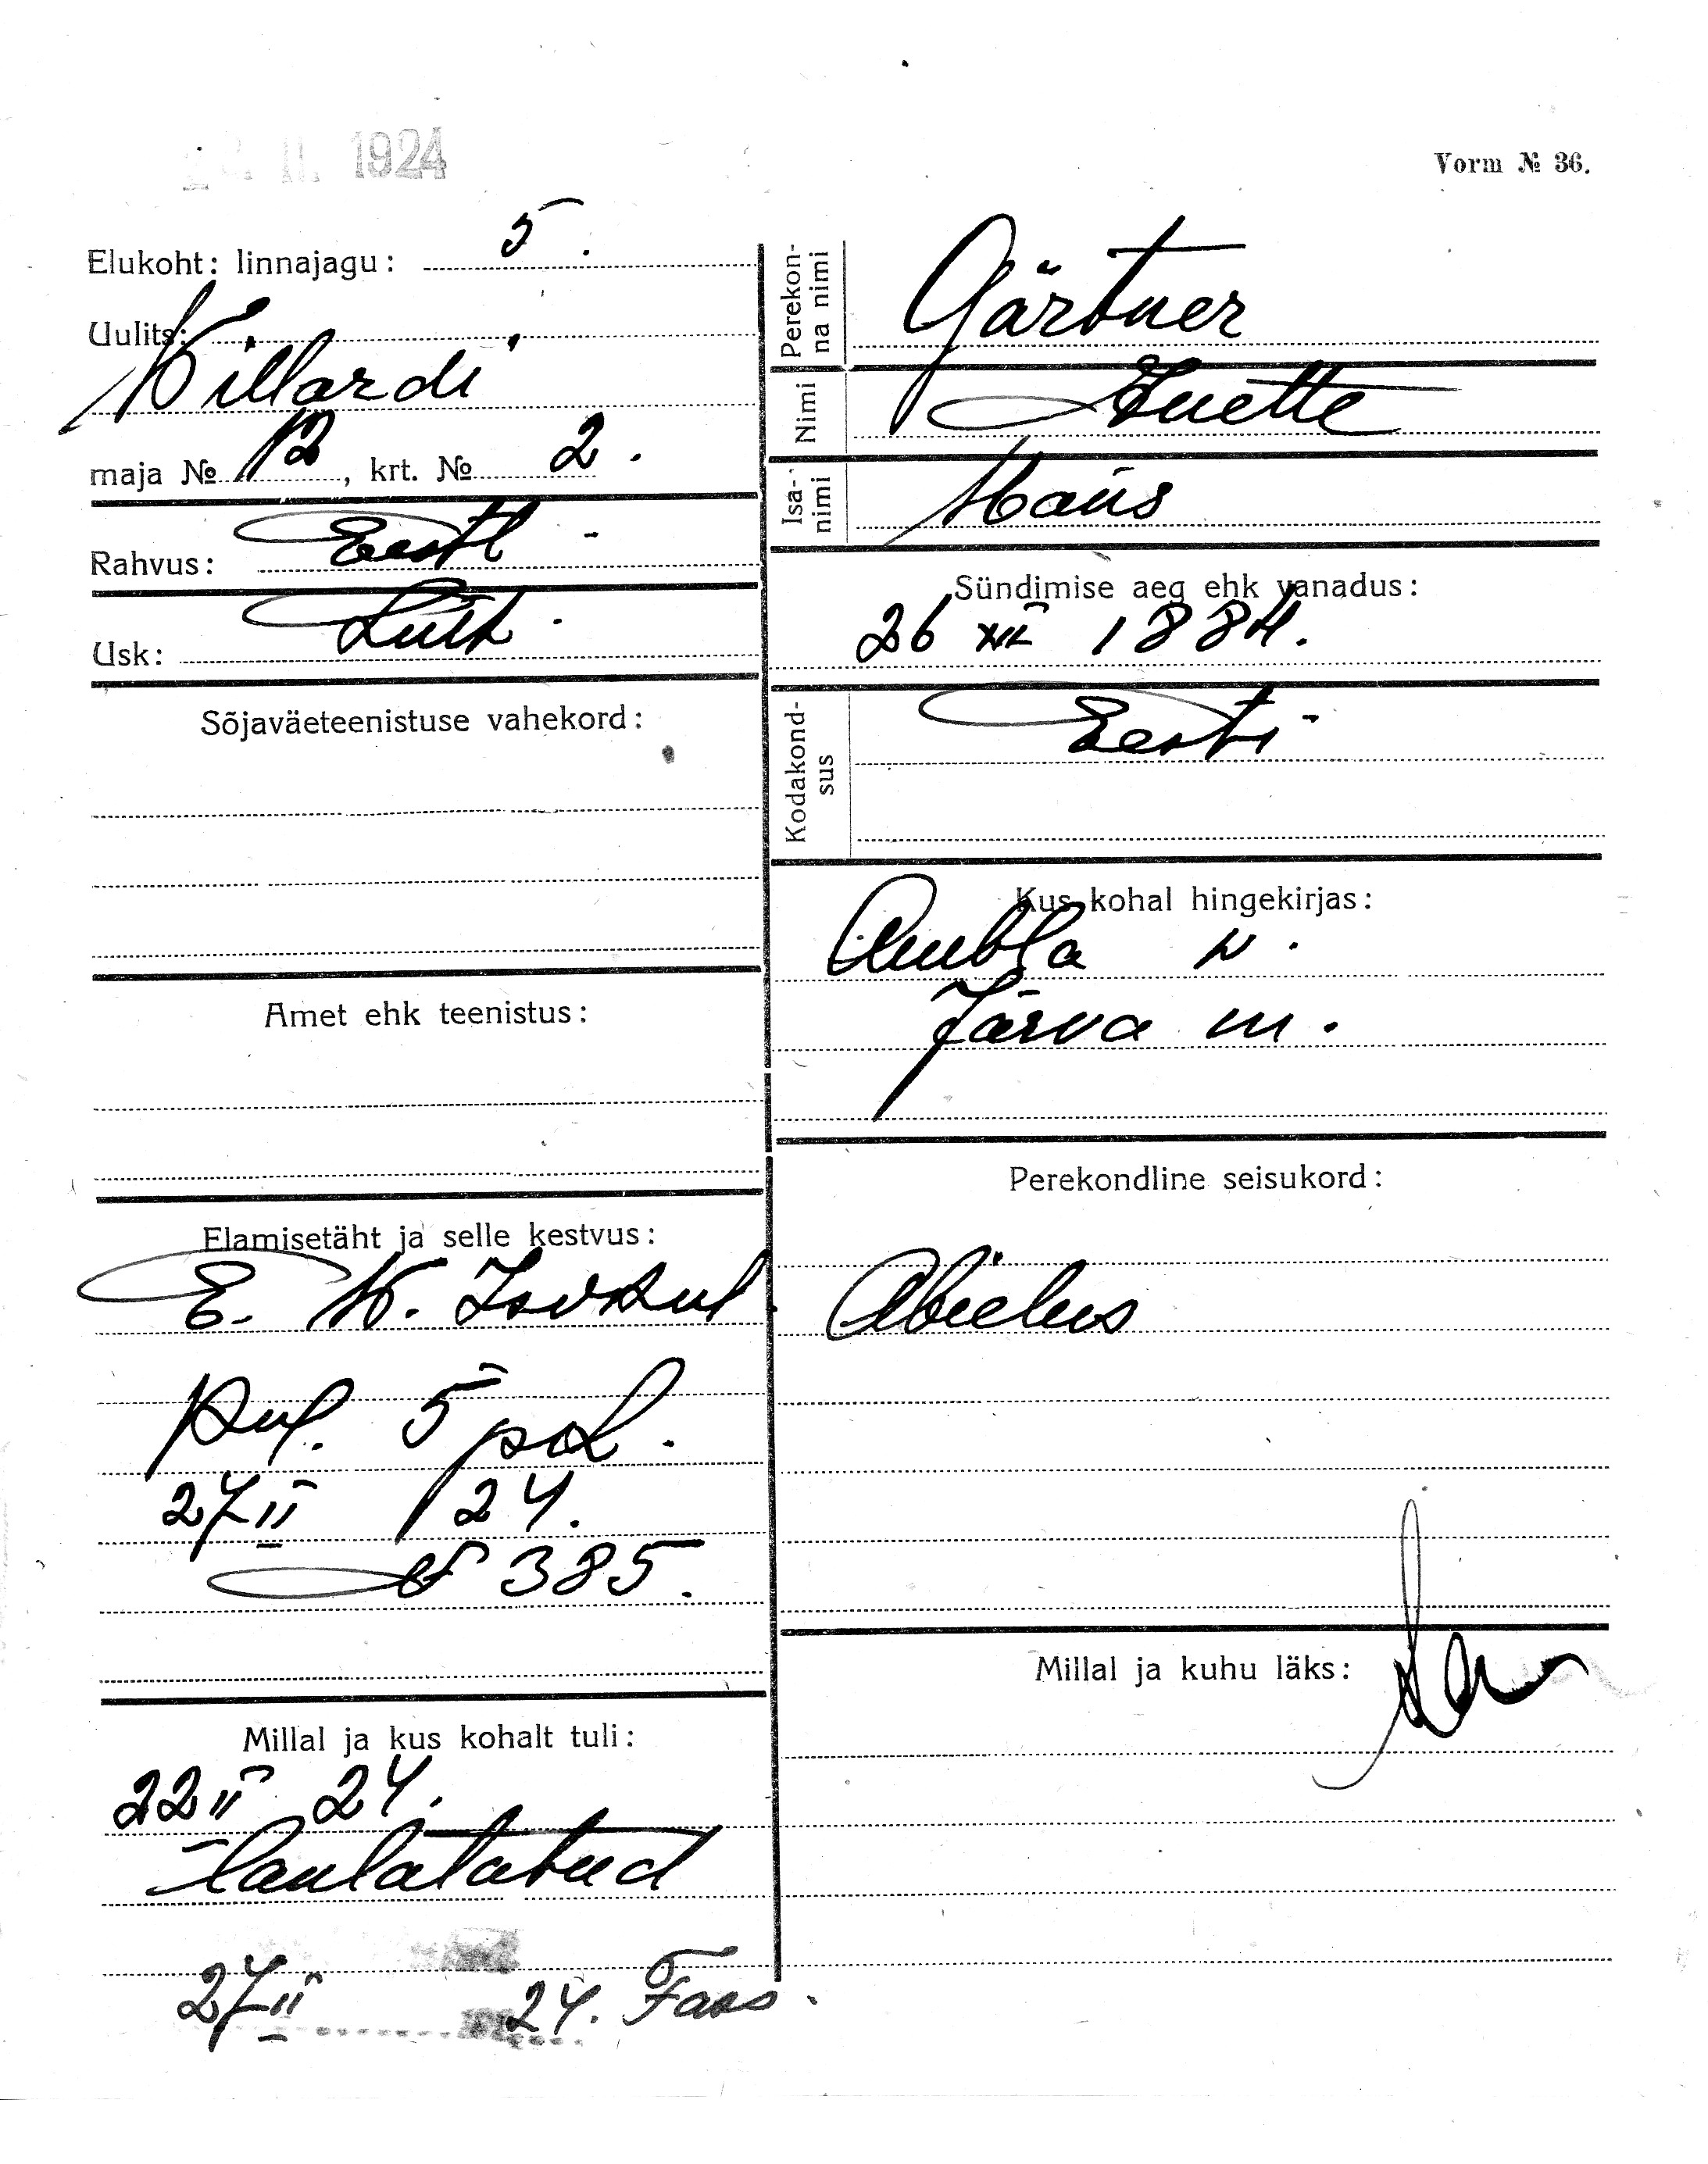 II. 1924
Vorm № 36.
Elukoht: linnajagu: 5.
Uulits:
Villardi
maja № 12, krt. № 2.
Rahvus: Eestl
Usk: Luth.
Sõjaväeteenistuse vahekord:
Amet ehk teenistus:
Elamisetäht ja selle kestvus:
E. W.
5 pol.
27 II 24.
№ 385.
Millal ja kus kohalt tuli:
22 II 24.
27 II 24.
Perekon-
na nimi
Gärtner
Nimi
Isa-
nimi
Hans
Sündimise aeg ehk vanadus:
26 XII 1884.
Kodakond-
sus
Eesti
Kus kohal hingekirjas:
Ambla v.
Järva m.
Perekondline seisukord:
Abielus
Millal ja kuhu läks: